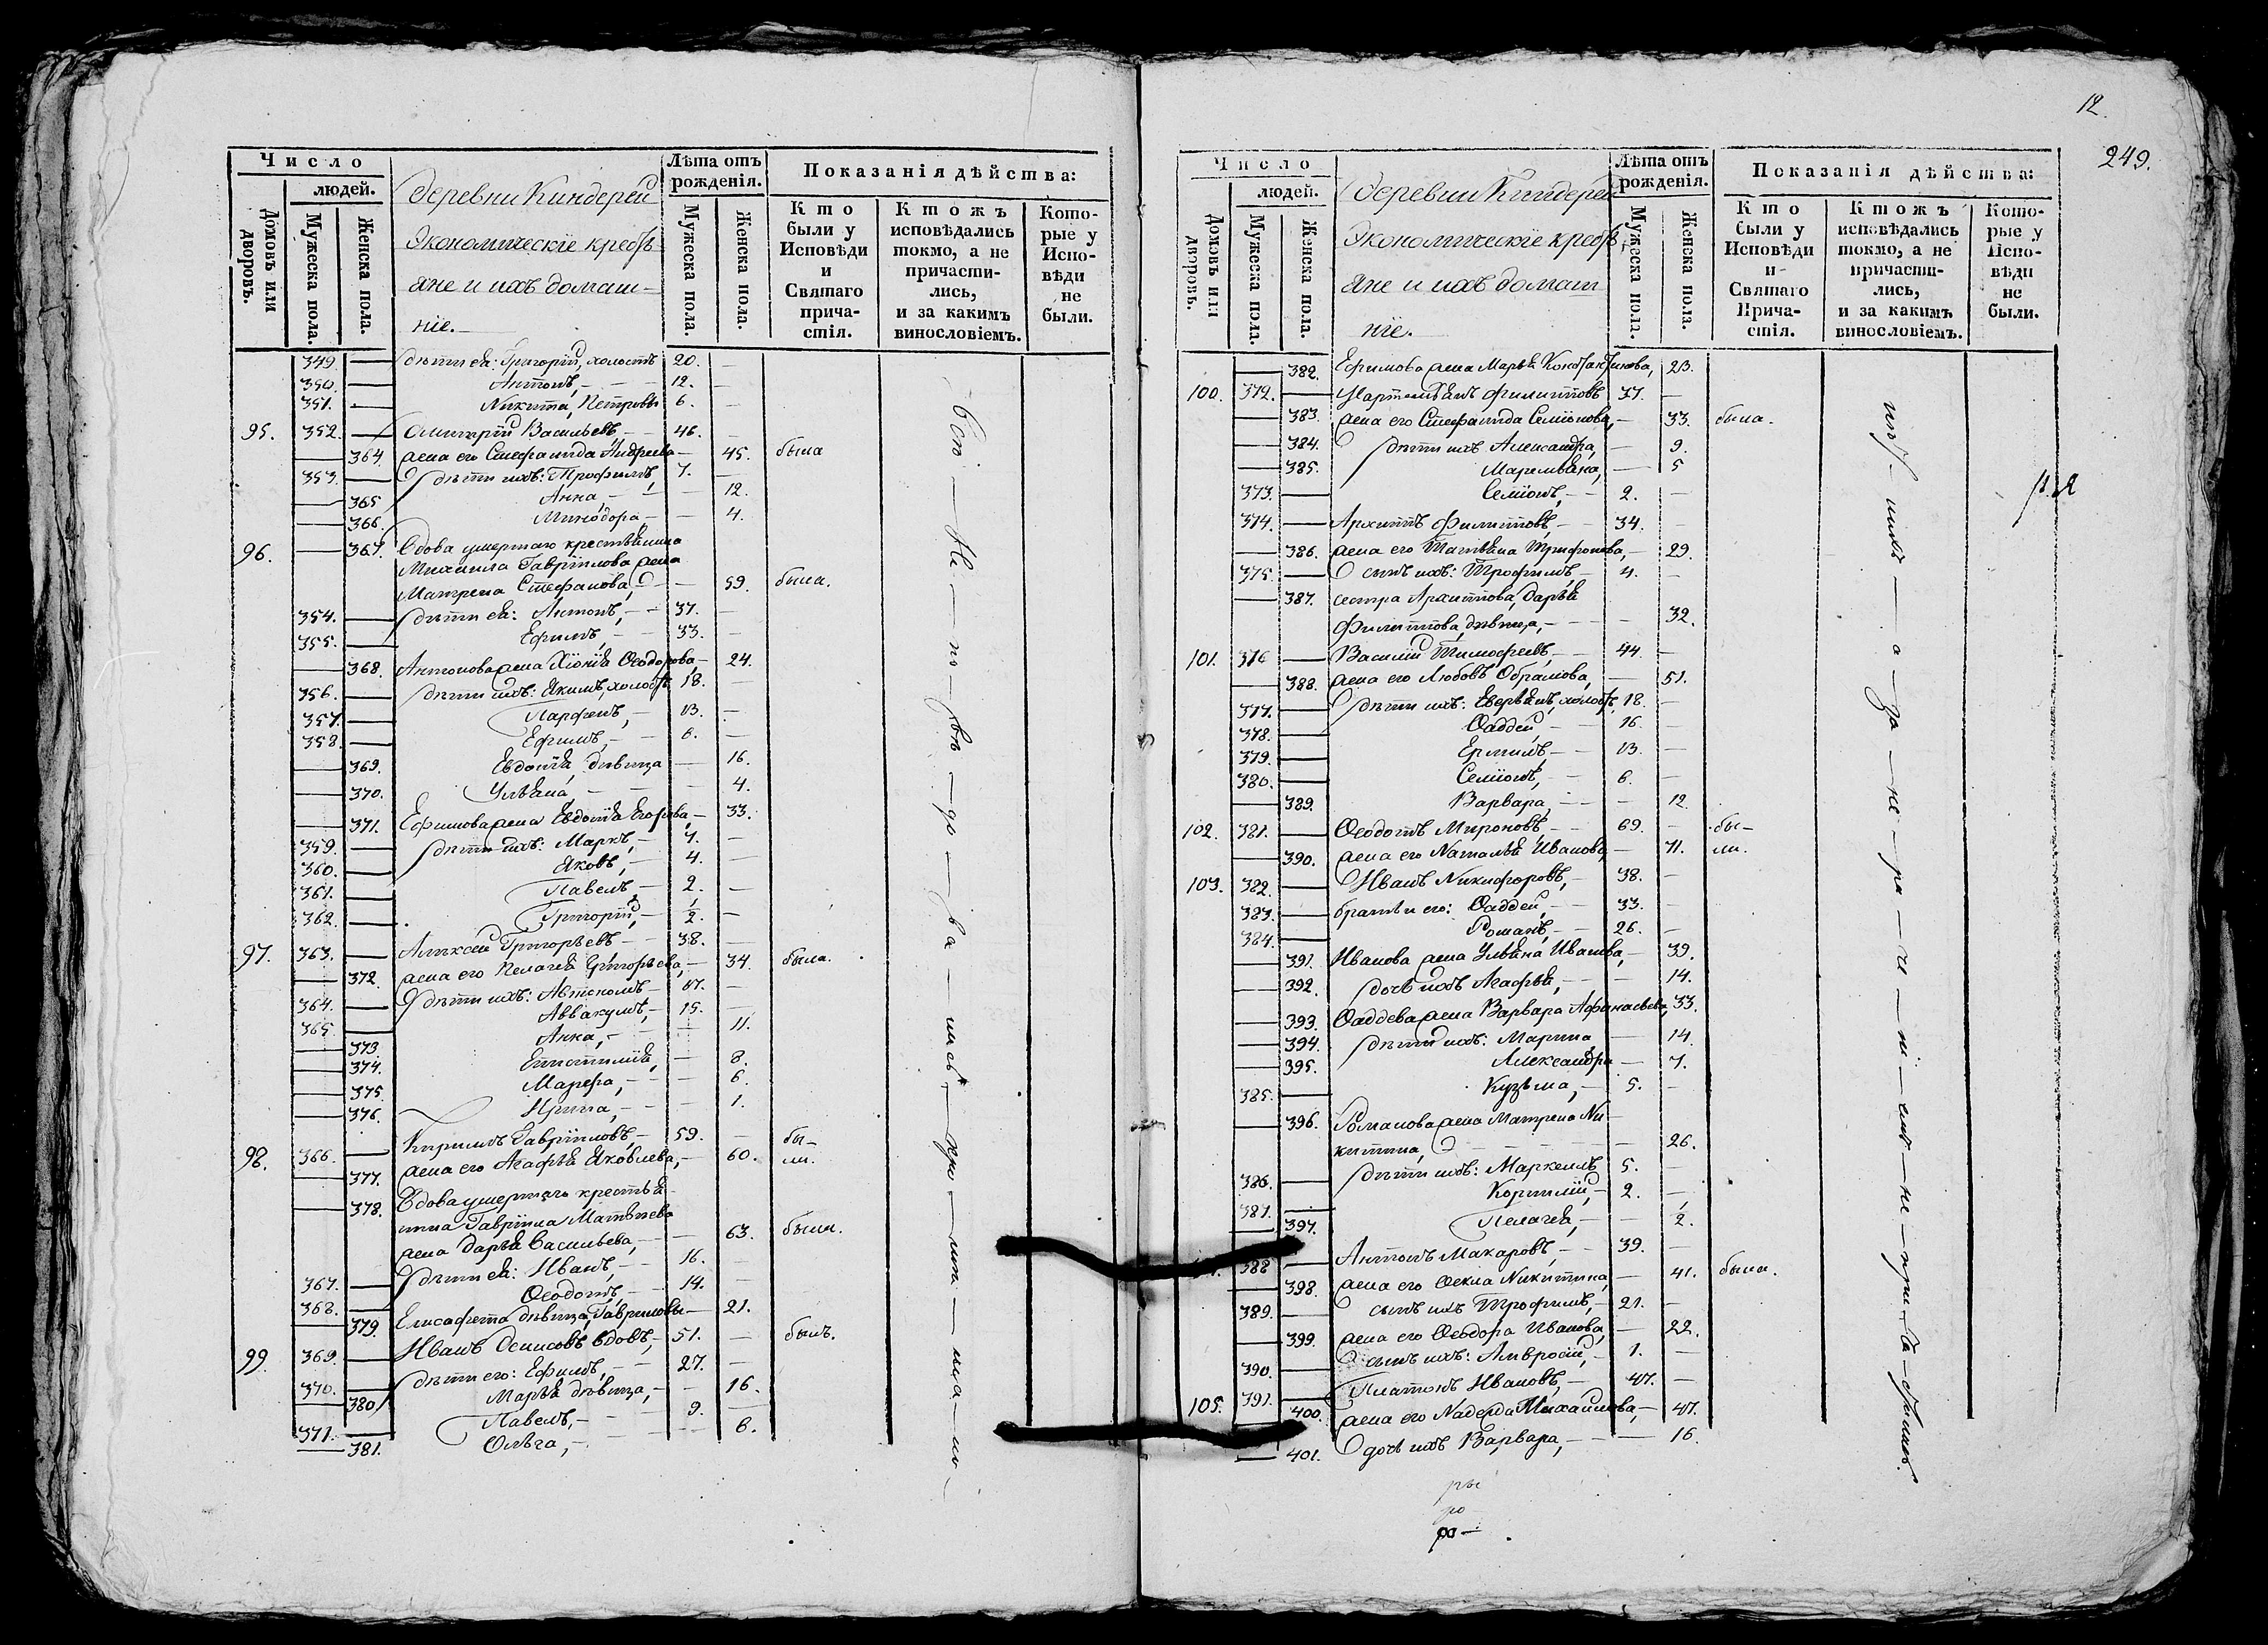 Число
людей.
Домовъ или дворовъ.
Мужеска пола.
Женска пола.
деревни Киндереи
Экономическіе крестъ
яне и ихъ домаш-
ніе.
Лѣта отъ рожденія.
Мужеска пола.
Женска пола.
Показанія дѣйства:
Кто были у Исповѣди и Святаго причастія.
Ктожъ исповѣдались токмо, а не причастились, и за какимъ винословіемъ.
Которые у Исповѣди не были.
349. — дѣти ея: Григорій, холостъ 20. —
350. — Антонъ, 12. —
351. — Никита, Петровы 6. —
95. 352. — Димитрій Васильевъ 46. —
— 364. жена его Стефанида Андреева — 45. была
353. — дѣти ихъ: Трофимъ, 7. —
— 365 Анна, — 12.
— 366. Минодора — 4.
96. — 367. Вдова умершаго крестьянина
Михаила Гавріилова жена
Матрена Стефанова, — 59. была.
354. — дѣти ея: Антонъ, 37. —
355. — Ефимъ, 33. —
— 368. Антонова жена Хіонія Ѳеодорова, — 24.
356. — дѣти ихъ: Якимъ, холостъ 18. —
357. — Парфенъ, 13. —
358. — Ефимъ, 6. —
— 369. Евдокія дѣвица — 16.
— 370. Ульяна, — 4.
— 371. Ефимова жена Евдокія Егорова, — 33.
359. — дѣти ихъ: Маркъ, 7. —
360. — Яковъ, 4. —
361. — Павелъ, 2. —
362. — Григорій, 1/2. —
97. 363. — Алексій Григорьевъ 38. —
— 372. жена его Пелагія Григорьева, — 34. была.
364. — дѣти ихъ: Автономъ 17. —
365. — Аввакумъ, 15. —
— 373 Анна, — 11.
— 374. Епистимія, — 8.
— 375. Марфа, — 6.
— 376. Ирина, — 1.
98. 366. — Кирилъ Гавріиловъ, 59. — бы-
— 377. жена его Агафія Яковлева, — 60. ли.
— 378. Вдова умершаго крестья
нина Гавріила Матвѣева
жена Дарья Васильева, — 63. была.
367. — дѣти ея: Иванъ, 16. —
368. — Ѳеодотъ, 14. —
— 379. Елисафета дѣвица, Гавриловы — 21.
99. 369. — Иванъ Денисовъ вдовъ, 51. — былъ.
370. — дѣти его: Ефимъ, 27. —
— 380. Марья дѣвица, — 16.
371. — Павелъ, 9. —
— 381. Ольга, — 6.
12.
249.
Число
людей.
Домовъ или дворовъ.
Мужеска пола.
Женска пола.
деревни Киндереи
Экономическіе крестъ
яне и ихъ домаш
ніе.
Лѣта отъ рожденія.
Мужеска пола.
Женска пола.
Показанія дѣйства:
Кто были у Исповѣди и Святаго Причастія.
Ктожъ исповѣдались токмо, а не причастились, и за какимъ винословіемъ.
Которые у Исповѣди не были.
— 382. Ефимова жена Марья 23.
100. 372. — Филипповъ 37. —
— 383. жена его Стефанида Семіонова, — 33. была.
— 384. дѣти ихъ Александра, — 9.
— 385. — 5
373. — Семіонъ, 2. —
374. — Архиппъ Филипповъ 34. —
— 386. жена его Татьяна Трифонова, — 29.
375. — сынъ ихъ: Трофимъ, 4. —
— 387. сестра Архиппова, Дарья
Филиппова, дѣвица, — 32.
101. 376 — Василій Тимофеевъ, 44. —
— 388. жена его Любовь Обрамова, — 51.
377. — дѣти ихъ: холостъ, 18. —
378. — Ѳаддей 16. —
379. — Ермилъ, 13. —
380. — Семіонъ, 6. —
— 389. Варвара, — 12
102. 381. — Ѳеодотъ Мироновъ, 69. — бы-
— 390. жена его Наталья Иванова, — 71. ли.
103. 382. — Иванъ Никифоровъ, 38. —
383. — братья его: Ѳаддей, 33. —
384. — Романъ, 26. —
— 391. Иванова жена Ульяна Иванова, — 39.
— 392. дочь ихъ Агафья, — 14.
— 393. Ѳаддева жена Варвара Афанасьева, 33.
— 394. дѣти ихъ: Марина — 14.
— 395. Александра — 7.
385. — Кузьма, 5. —
— 396. Романова жена Матрена Ни-
китина, — 26.
386. — дѣти ихъ: Маркелъ 5. —
387. — Корнилій, 2. —
— 397. Пелагія, — 1/2.
388 — Антонъ Макаровъ, 39. —
— 398. жена его Ѳекла Никитина, — 41. была.
389. — сынъ ихъ Трофимъ, 21. —
— 399. жена его Ѳеодора Иванова, — 22.
390. — сынъ ихъ: Амвросій, 1. —
105. 391. — Платонъ Ивановъ, 47. —
— 400. жена его Надежда Михаилова, — 47.
— 401. дочь ихъ Варвара, — 16.